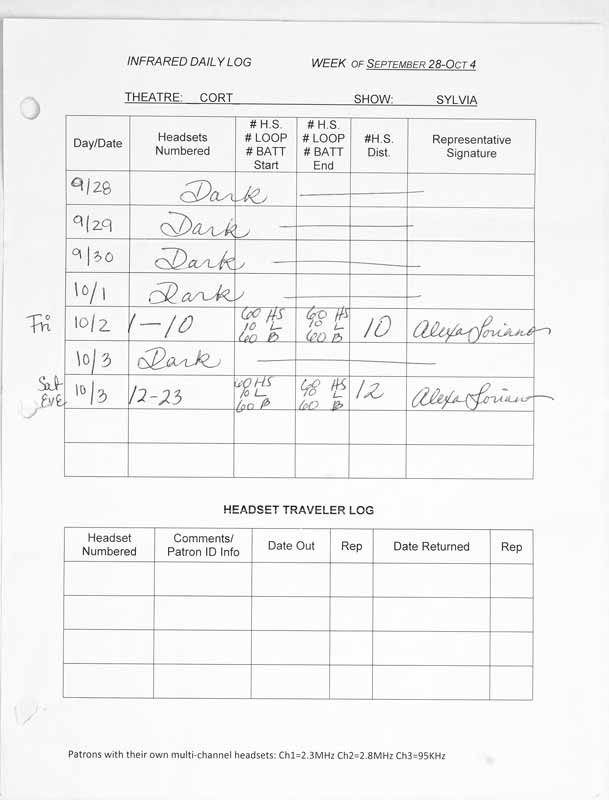 INFRARED DAILY LOG WEEK OF SEPTEMBER 28-OCT 4
THEATRE: CORT SHOW: SYLVIA
Day/Date Headsets Numbered # H.S. # LOOP # BATT Start # H.S. # LOOP # BATT End #H.S. Dist. Representative Signature
9/28 Dark
9/29 Dark
9/30 Dark
10/1 Dark
Fri 10/2 1-10 60 HS 10 L 60 B 60 HS 10 L 60 B 10 Alexa Soriano
10/3 Dark
Sat EVE 10/3 12-23 60 HS 10 L 60 B 60 HS 10 L 60 B 12 Alexa Soriano
HEADSET TRAVELER LOG
Headset Numbered Comments/ Patron ID Info Date Out Rep Date Returned Rep
Patrons with their own multi-channel headsets: Ch1=2.3MHz Ch2=2.8MHz Ch3=95KHz